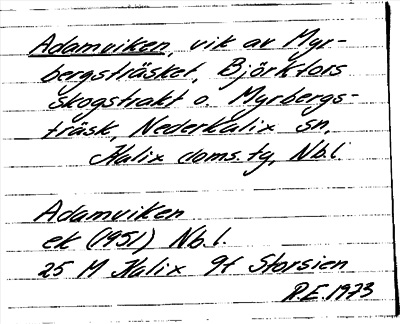 Adamviken, vik av Myr-
bergsträsket, Björkfors
skogstrakt o. Myrbergs-
träsk, Nederkalix sn,
Kalix doms. tg, Nb.l.
Adamviken
ek (1951) Nb.l.
25 M Kalix 9f Storsien
R.E. 1973